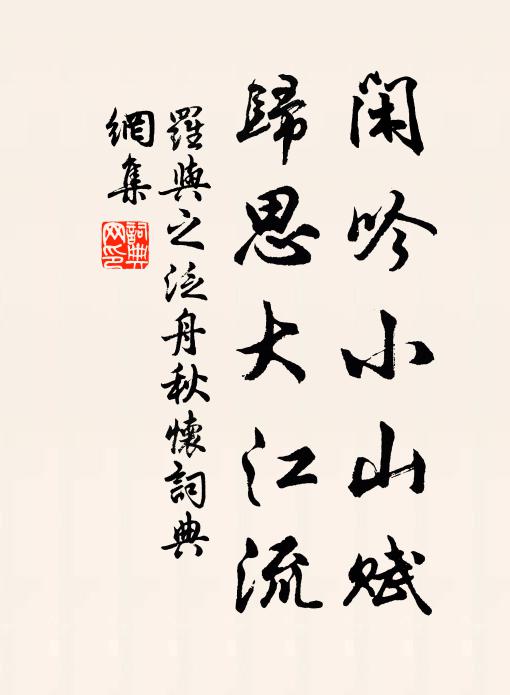 闲吟小山赋
歸思大江流
羅與之泛舟秋懷詞典
網集
詞典
网印